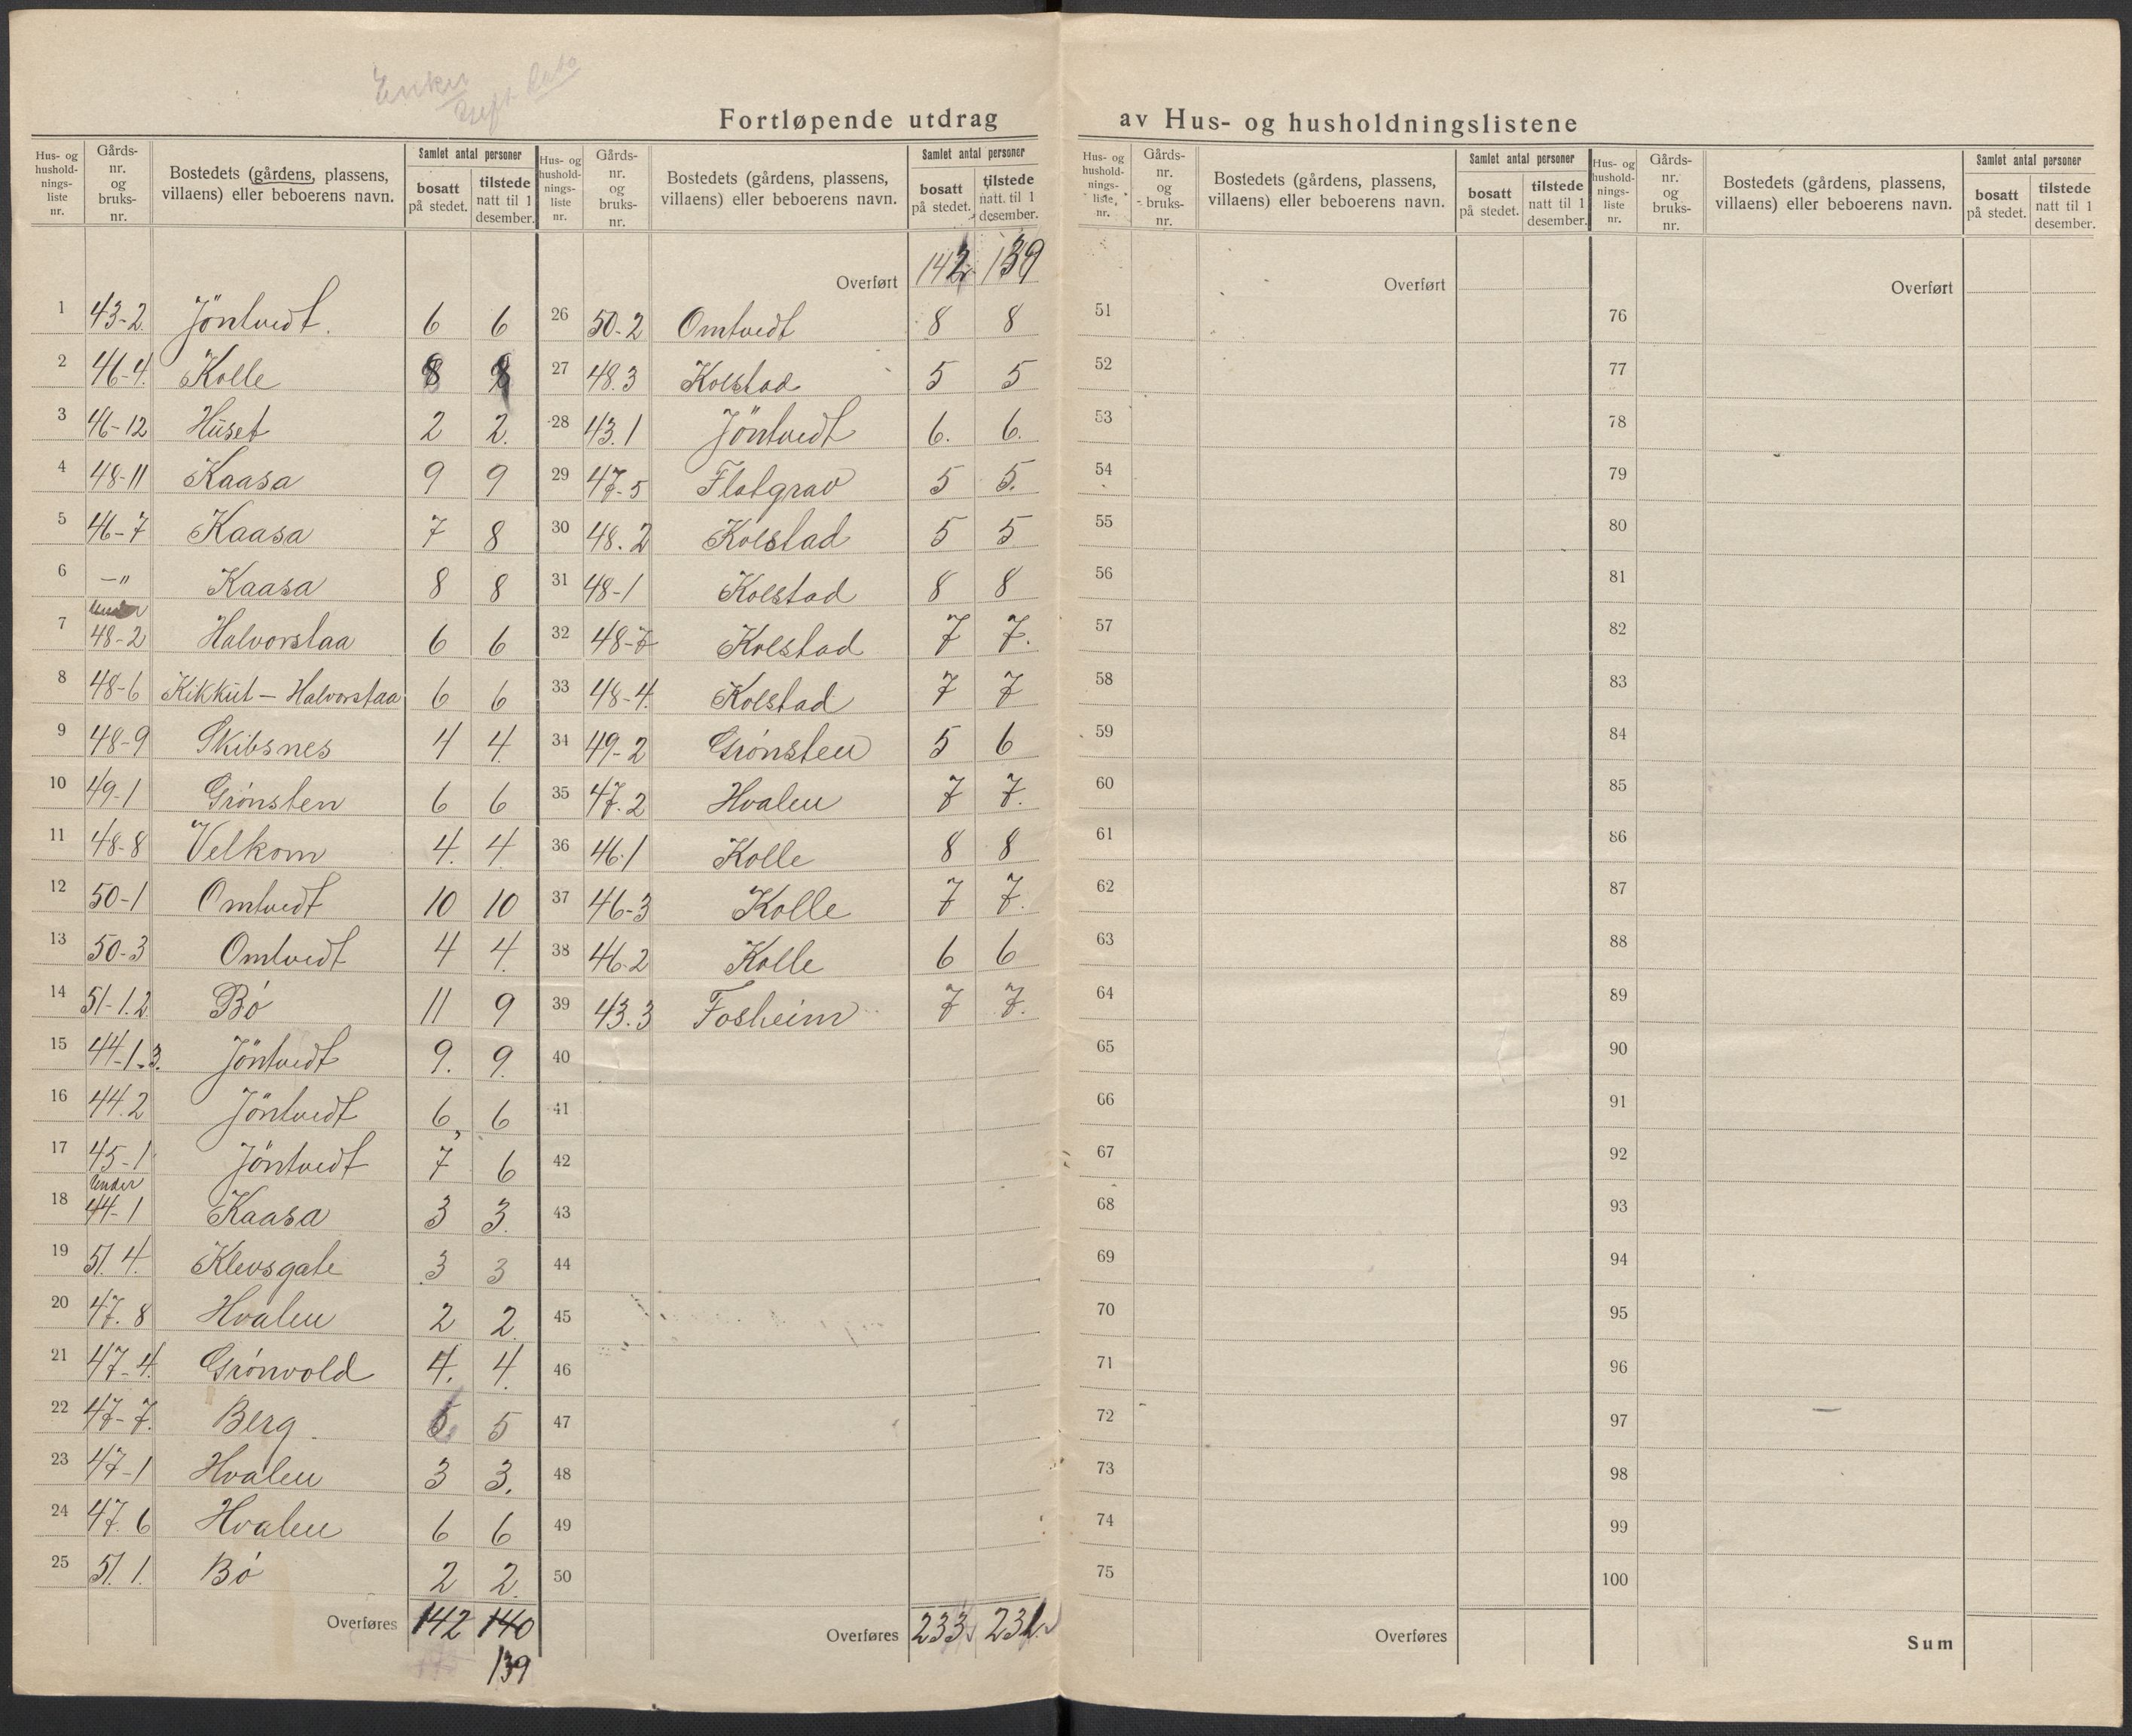 Enker
Fortløpende utdrag av Hus- og husholdningslistene
Hus- og hushold- nings- liste nr. | Gårds- nr. og bruks- nr. | Bostedets (gårdens, plassens, villaens) eller beboerens navn. | Samlet antal personer | bosatt på stedet. | tilstede natt til 1 desember.
1 43-2 Jöntvedt. 6 6
2 46-4. Kolle 8 8
3 46-12 Huset 2 2.
4 48-11 Kaasa 9 9
5 46-7 Kaasa 7 8
6 -„ Kaasa 8 8
7 under 48-2 Halvorstaa 6 6
8 48-6 Kikkut - Halvorstaa 6 6
9 48-9 Skibsnes 4 4.
10 49-1 Grönsten 6 6
11 48-8 Velkom 4. 4
12 50-1 Omtvedt 10 10
13 50-3 Omtvedt 4 4.
14 51-1.2 Bó 11 9
15 44-1-3. Jöntvedt 9. 9.
16 44.2 Jöntvedt 6 6
17 45-1 Jöntvedt 7 6
18 Under 44-1 Kaasa 3 3.
19 51.4. Klevsgate 3 3
20 47.8 Hvalen 2 2.
21 47-4. Grónvold 4. 4.
22 47-7. Berg 5
23 47-1 Hvalen 3 3.
24 47.6 Hvalen 6 6
25 51.1. Bó 2 2.
Overføres 142 140
139
Hus- og hushold- nings- liste nr. | Gårds- nr. og bruks- nr. | Bostedets (gårdens, plassens, villaens) eller beboerens navn. | Samlet antal personer | bosatt på stedet. | tilstede natt. til 1 desember.
Overført 142 139
26 50-2 Omtvedt 8 8
27 48.3 Kolstad 5 5
28 43.1 Jöntvedt 6. 6.
29 47-5 Flatgrav 5 5.
30 48.2 Kolstad 5 5
31 48-1 Kolstad 8 8
32 48-7 Kolstad 7 7.
33 48-4. Kolstad 7 7
34 49-2 Grónsten 5 6
35 47.2 Hvalen 7 7.
36 46.1 Kolle 8 8
37 46-3 Kolle 7 7.
38 46.2 Kolle 6 6
39 43.3 Fosheim 7 7.
40
41
42
43
44
45
46
47
48
49
50
Overføres 233 231
Hus- og hushold- nings- liste, nr. | Gårds- nr. og bruks- nr. | Bostedets (gårdens, plassens, villaens) eller beboerens navn. | Samlet antal personer | bosatt på stedet. | tilstede natt til 1 desember.
Overført
51
52
53
54
55
56
57
58
59
60
61
62
63
64
65
66
67
68
69
70
71
72
73
74
75
Overføres
Hus- og hushold- nings- liste nr. | Gårds- nr. og bruks- nr. | Bostedets (gårdens, plassens, villaens) eller beboerens navn. | Samlet antal personer | bosatt på stedet. | tilstede natt til 1 desember.
Overført
76
77
78
79
80
81
82
83
84
85
86
87
88
89
90
91
92
93
94
95
96
97
98
99
100
Sum